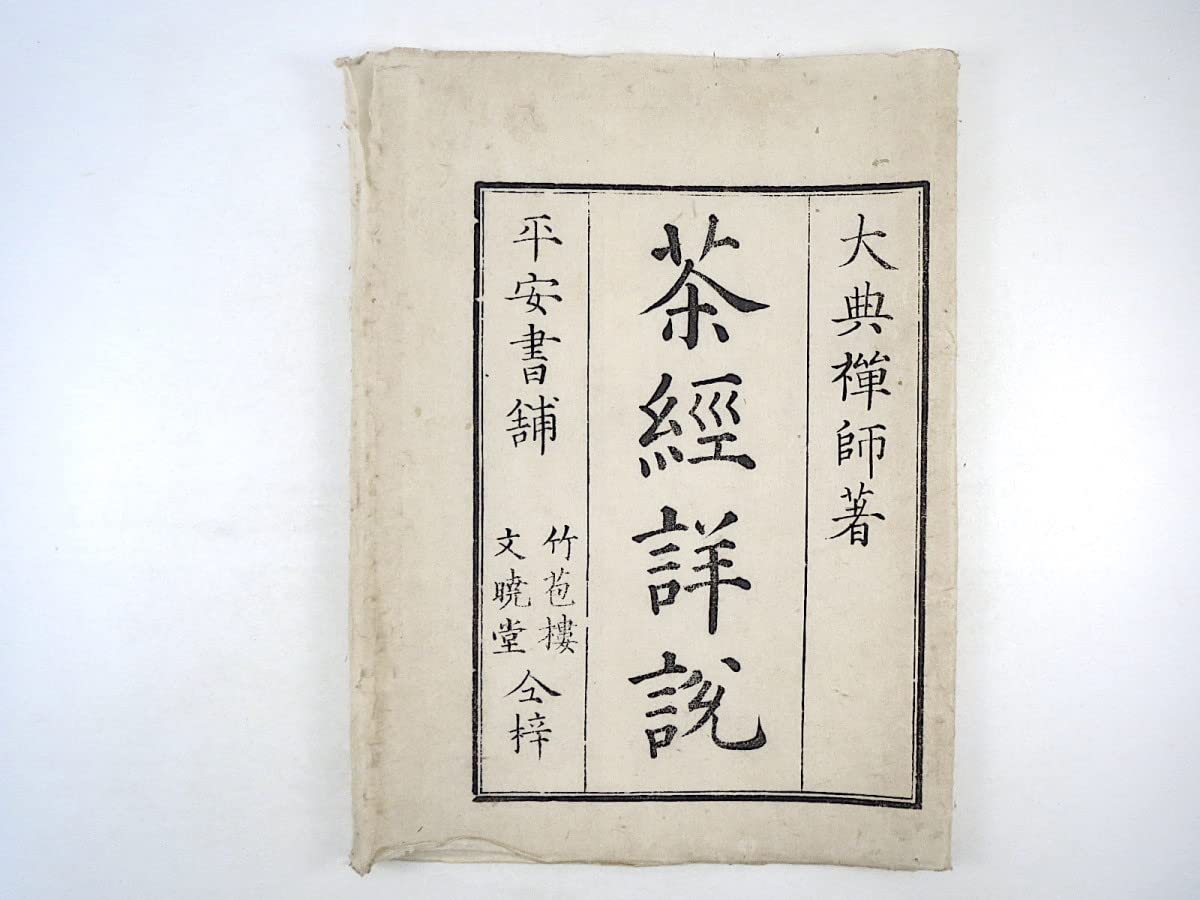 大典禪師著
茶經詳説
平安書舗
竹苞樓
文曉堂
仝梓